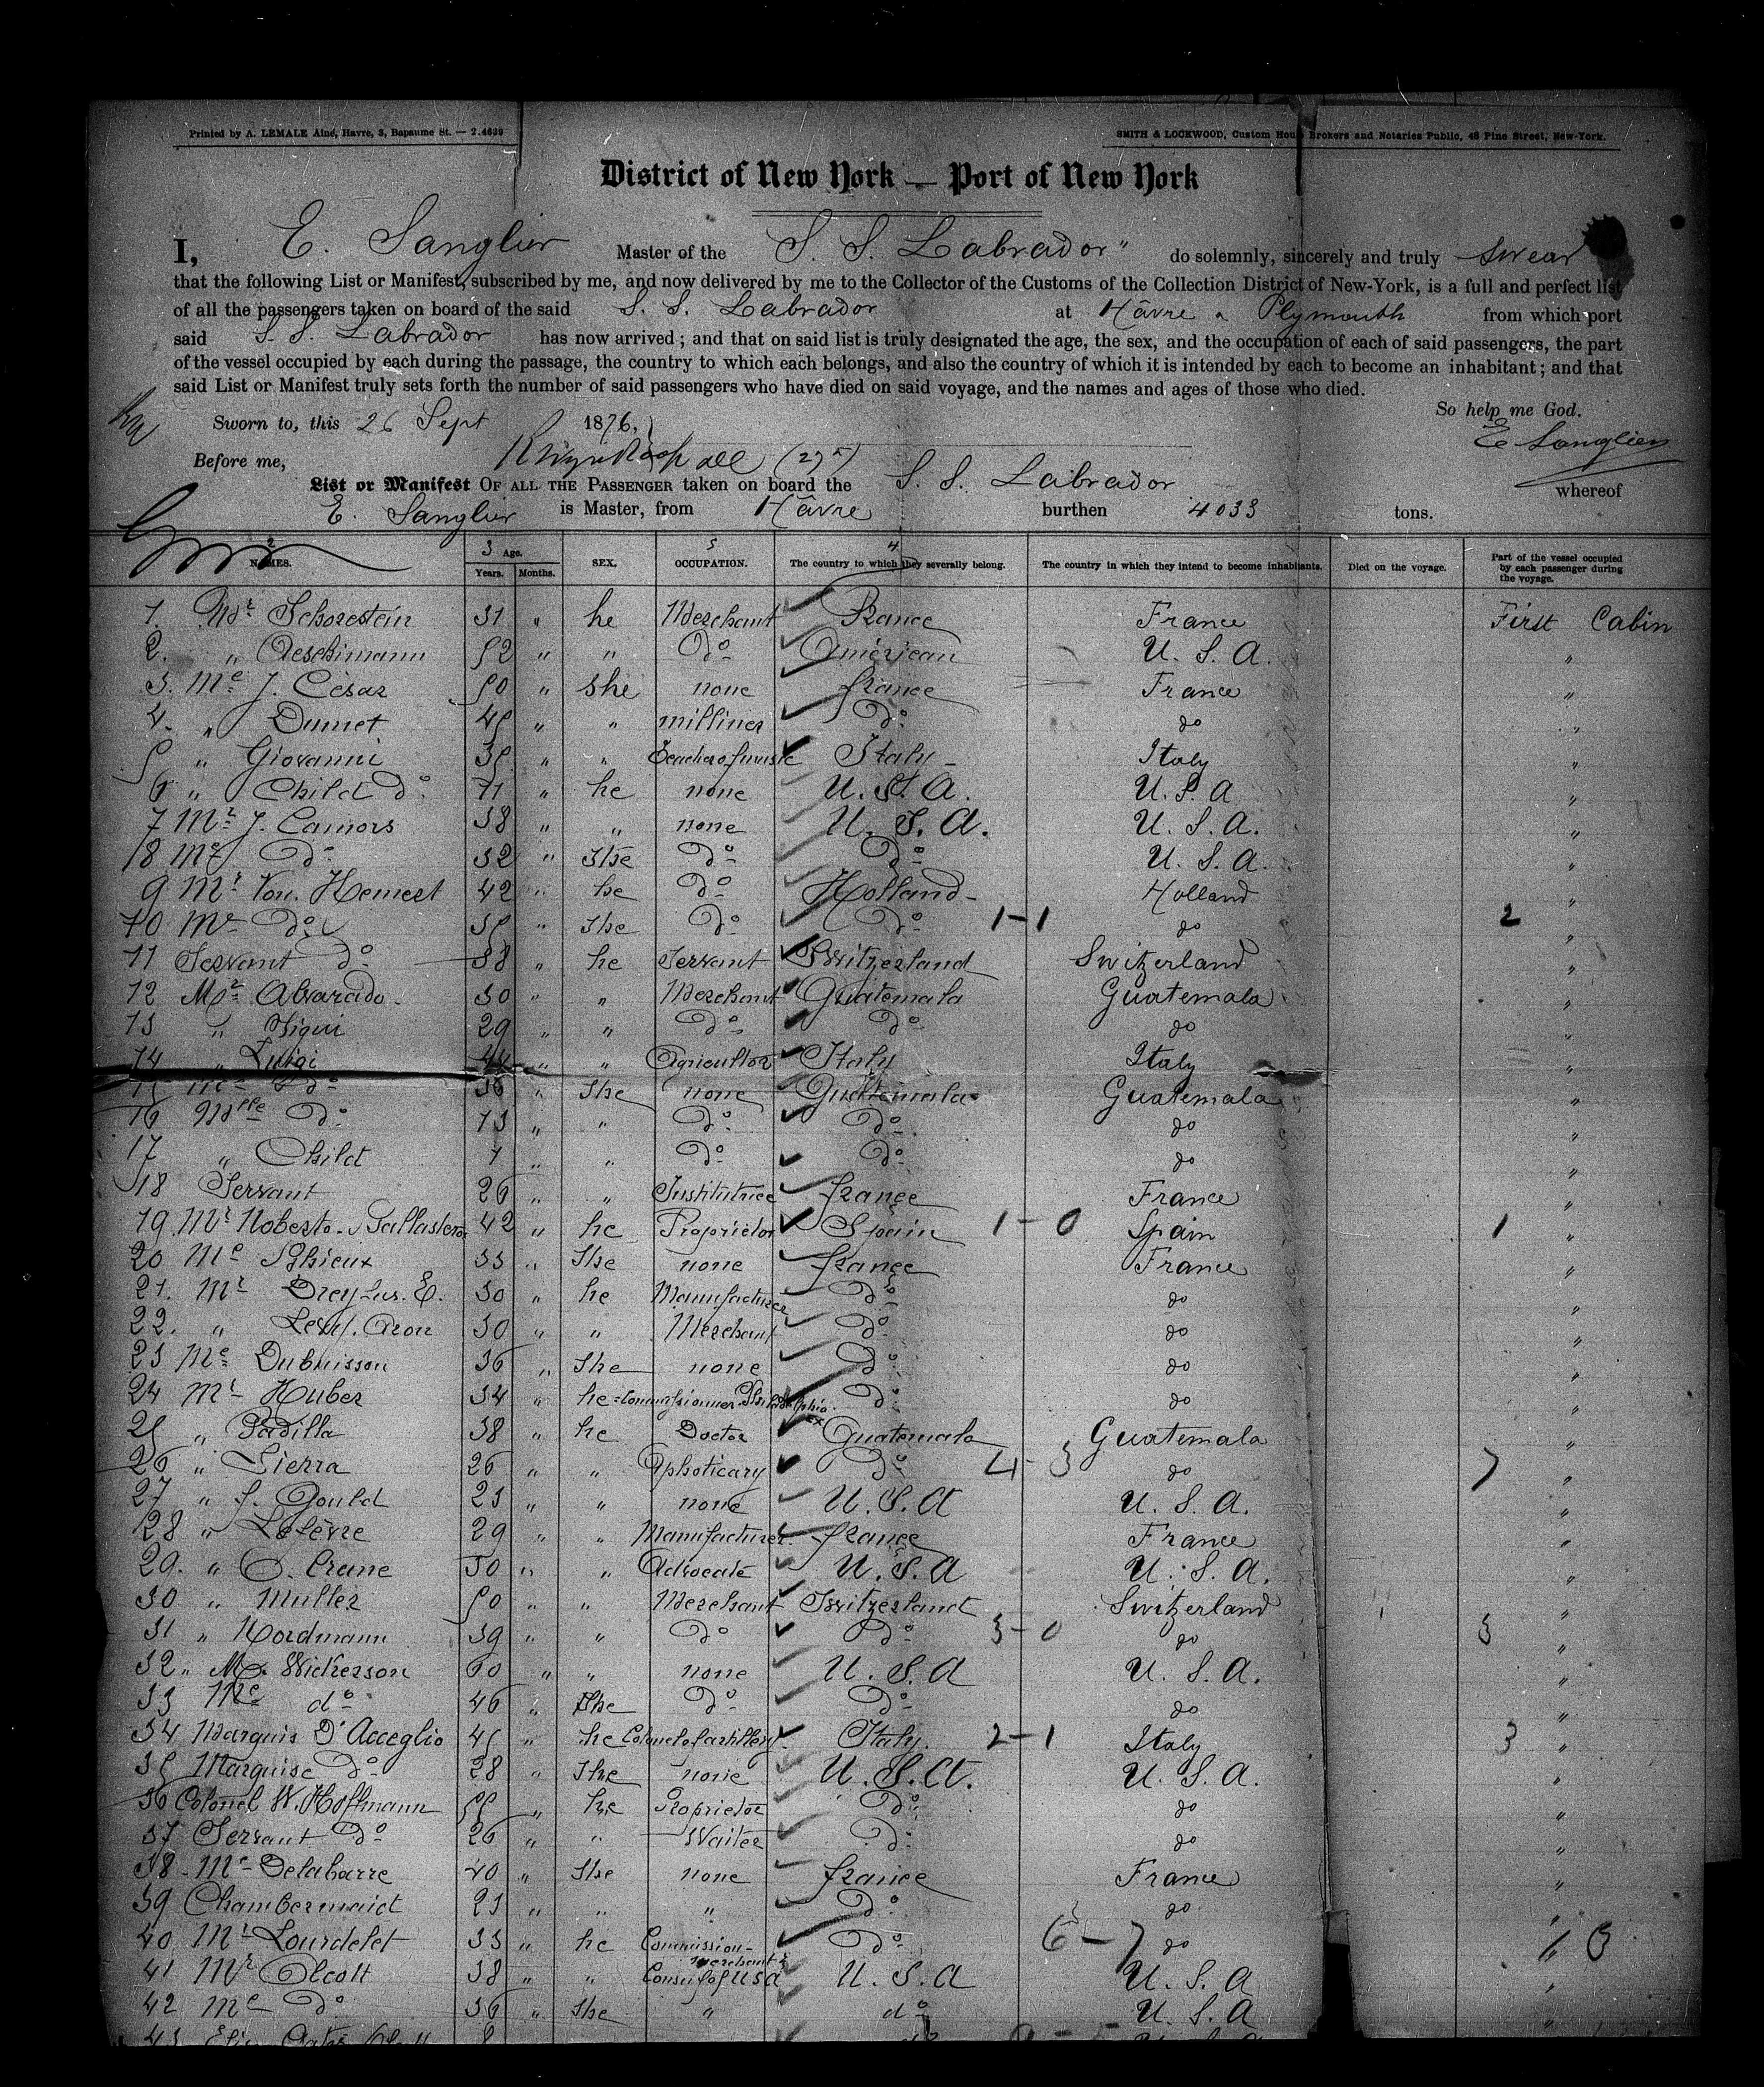 Printed by A. LEMALE Aîné, Havre, 3, Bapaume St. — 2.4639
SMITH & LOCKWOOD, Custom House Brokers and Notaries Public, 48 Pine Street, New-York.
District of New York — Port of New York
I, E. Sanglier Master of the S. S. Labrador" do solemnly, sincerely and truly swear
that the following List or Manifest, subscribed by me, and now delivered by me to the Collector of the Customs of the Collection District of New-York, is a full and perfect list
of all the passengers taken on board of the said S. S. Labrador at Hâvre & Plymouth from which port
said S. S. Labrador has now arrived ; and that on said list is truly designated the age, the sex, and the occupation of each of said passengers, the part
of the vessel occupied by each during the passage, the country to which each belongs, and also the country of which it is intended by each to become an inhabitant ; and that
said List or Manifest truly sets forth the number of said passengers who have died on said voyage, and the names and ages of those who died.
So help me God.
Sworn to, this 26 Sept 1876.
E Sanglier
Before me,
List or Manifest OF ALL THE PASSENGER taken on board the S. S. Labrador whereof
E. Sanglier is Master, from Hâvre burthen 4033 tons.
2 NAMES. 3 Age. Years. Months. SEX. 5 OCCUPATION. 4 The country to which they severally belong. The country in which they intend to become inhabitants. Died on the voyage. Part of the vessel occupied by each passenger during the voyage.
1. Mr Schorestein 31 " he Merchant France France First Cabin
2. " Aeschimann 52 " " Do American U. S. A. "
3. Me J. Cèsar 50 " she none france France "
4. " Dumet 45 " " milliner Do do "
5 " Giovanni 35 " " Teacher of music Italy Italy "
6 " Child do 71 " he none U. S. A. U. S. A "
7 Mr J. Camors 38 " " none U. S. A. U. S. A. "
8 Me Do 32 " She Do Do U. S. A. "
9 Mr Von. Hemert 42 " he Do Holland Holland "
10 Me Do 35 " She Do Do 1-1 do 2 "
11 Servant do 38 " he Servant Switzerland Switzerland "
12 Mr Alvarado 30 " " Merchant Guatemala Guatemala "
13 " 29 " " Do Do do "
14 " Luigi 44 " " Agricultor Italy Italy "
15 Me do 36 " She none Guatemala Guatemala "
16 Mlle do 13 " " Do Do do "
17 " Child " " Do Do do "
18 Servant 26 " " Institutrice france France "
19 Mr Noberto 42 " he Proprietor Spain 1-0 Spain 1 "
20 Me 33 " She none france France "
21. Mr Dreyfus. E. 30 " he Manufacturer Do do "
22. " Levy. Aron 30 " " Merchant Do do "
23 Me Dubuisson 36 " She none Do do "
24 Mr Huber 34 " he Commissionner Philadelphia Do do "
25 " Padilla 38 " he Doctor Guatemala Guatemala "
26 " Sierra 26 " " Aphoticary Do 4-3 do 7 "
27 " f. Gould 23 " " none U. S. A U. S. A. "
28 " Lefèvre 29 " " Manufacturer france France "
29. " O. Crane 30 " " Advocate U. S. A U. S. A. "
30 " Muller 50 " " Merchant Switzerland Switzerland "
31 " Nordmann 39 " " Do Do 3-0 do 3 "
32 " Wickerson 60 " " none U. S. A U. S. A. "
33 Me do 46 " She Do Do do "
34 Marquis D'Acceglio 45 " he Colonel of artillery Italy. 2-1 Italy 3 "
35 Marquise do 28 " She none U. S. A. U. S. A. "
36 Colonel W. Hoffmann 55 " he Proprietor Do do "
37 Servant Do 26 " " Waiter Do do "
38 Me Delabarre 40 " She none france France "
39 Chambermaid 23 " " " Do do "
40 Mr Lourdelet 33 " he Commission-merchant Do 6-7 do "
41 Mr Olcott 38 " " Consul of USA U. S. A U. S. A "
42 Me Do 36 " She " do U. S. A